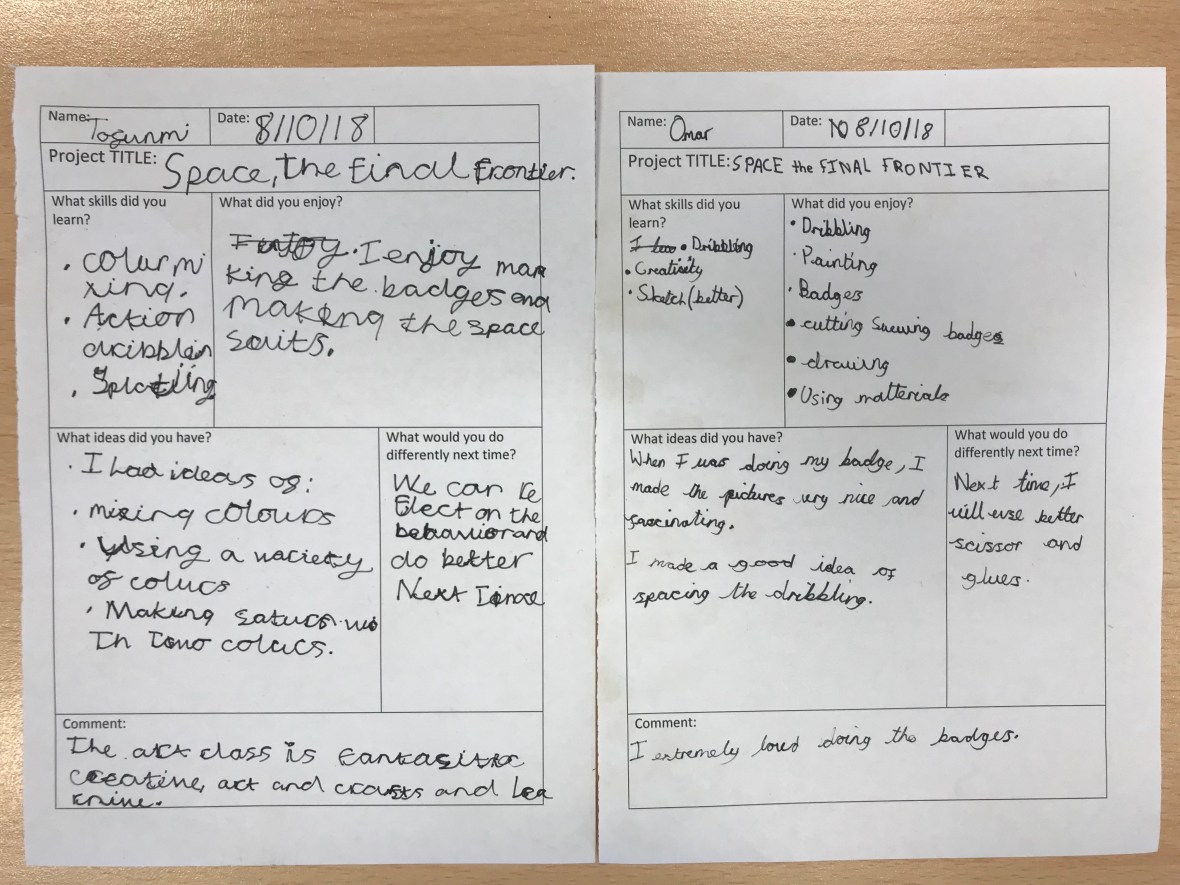 Name: Tosunmi
Date: 8/10/18
Project TITLE: Space, the final frontier.
What skills did you
learn?
• colur mi
xing.
• Action
dribblein
• Splatling
What did you enjoy?
I enjoy. I enjoy mak
king the badges and
Making the space
suits.
What ideas did you have?
• I had ideas of:
• mixing colours
• Using a variety
of colurs
• Making saturn wi
Th Two colurs.
What would you do
differently next time?
We can re
flect on the
behavior and
do better
Next Time
Comment:
The art class is
creative, art and crafts and lea
rning.
Name: Omar
Date: 8/10/18
Project TITLE: SPACE the FINAL FRONTIER
What skills did you
learn?
• Dribbling
• Creativity
• Sketch (better)
What did you enjoy?
• Dribbling
• Painting
• Badges
• cutting Suewing badges
• drawing
• Using matterials
What ideas did you have?
When I was doing my badge, I
made the pictures very nice and
fascinating.
I made a good idea of
spacing the dribbling.
What would you do
differently next time?
Next time, I
will use better
scissor and
glues.
Comment:
I extremely loved doing the badges.